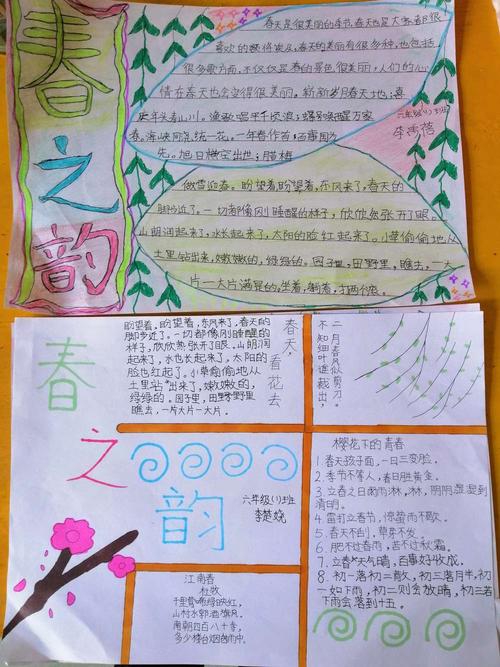 春之韵
春天是很美丽的季节,春天也是大家都很
喜欢的
春天的美丽有很多种,也包括
很多歌方面,不仅仅是春的景色很美丽,人们的心
情在春天也会变得很美丽。崭新岁月春天地;喜
庆年头春山川。渔歌唱平千顷浪;蝶翅唤醒万家
春。海峡同
统一花。一年春作首;百事
为
先。旭日横空出世;腊梅
六年级(1)班
李雨蓓
傲雪迎春。盼望着,盼望着,东风来了,春天的
脚步近了。一切都像刚睡醒的样子,欣欣然张开了眼。
山朗润起来了,水长起来了,太阳的脸红起来了。小草偷偷地从
土里钻出来,嫩嫩的,绿绿的。园子里,田野里,瞧去,一大
片一大片满是的,坐着,躺着,打两个滚。
春之韵
盼望着,盼望着,东风来了,春天的
脚步近了。一切都像刚睡醒的
样子,欣欣然张开了眼。山朗润
起来了,水也长起来了,太阳的
脸也红起来了。小草偷偷地从
土里“钻”出来了,嫩嫩的,
绿绿的。园子里,田野野里
瞧去,一片片一大片。
春天,看花去
二月春风似剪刀。
不知细叶谁裁出,
六年级(1)班
李楚娆
樱花下的青春
1 春天孩子面,一日三变脸。
2. 季节不等人,春日胜黄金。
3. 立春之日雨淋淋,阴阴湿湿到
清明。
4. 雷打立春节,惊蛰雨不歇。
5. 春天不刮,草芽不发。
6. 肥不过春雨,苦不过秋霜。
7. 立春天气晴,百事好收成。
8. 初一落初二散,初三落月半,初
一如下雨,初二则会放晴,初三若
下雨会落到十五。
江南春
杜牧
千里莺啼绿映红,
山村水郭酒旗风。
南朝四百八十寺,
多少楼台烟雨中。